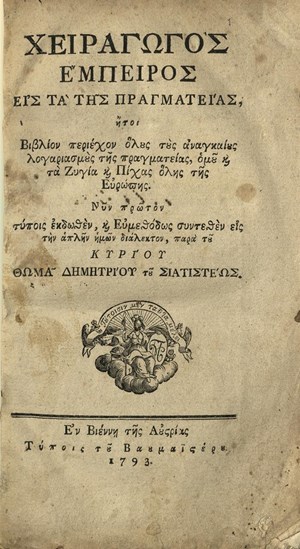 ΧΕΙΡΑΓΩΓῸΣ
Ε῎ΜΠΕΙΡΟΣ
ΕΙ᾿Σ ΤΑ῾ ΤΗ͂Σ ΠΡΑΓΜΑΤΕΙ´ΑΣ,
ἤτοι
Βιβλίον περιέχον ὅλους τοὺς ἀναγκαίους
λογαριασμοὺς τῆς πραγματείας, ὁμοῦ ϗ
τὰ Ζυγία ϗ Πίχας ὅλης τῆς
Εὐρώπης.
Νῦν πρῶτον
τύποις ἐκδωθὲν, ϗ Εὐμεθόδως συντεθὲν εἰς
τὴν ἁπλῆν ἡμῶν διάλεκτον, παρὰ τοῦ
ΚΥΡΓΟΥ
ΘΩΜΑ῀ ΔΗΜΗΤΡΓΟΥ τοῦ ΣΙΑΤΙΣΤΕ´ΩΣ.
Ἐν Βιέννῃ τῆς Αὐςρίας
Τύποις τοῦ Βαυμαϊςέρου
1793.